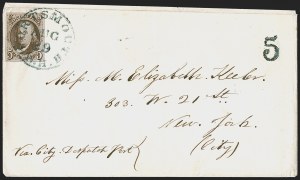 PORTSMOUTH
AUG
9
N.H.
5
5
Miss M. Elizabeth Keeler.
303. W. 21st St
New York.
(City)
Via City Dispatch Post